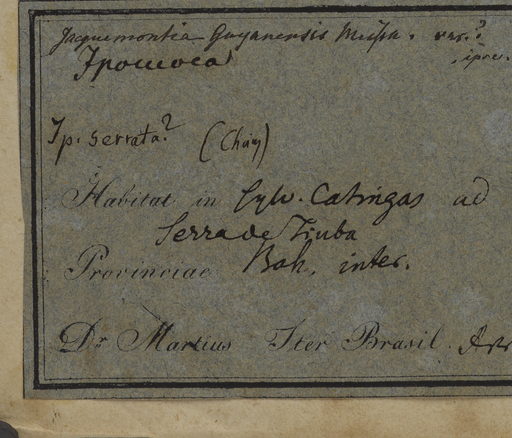 Jacquemontia Guyanensis Meisn. var.?
Ipomoea
Ip. serrata? (Choisy)
Habitat in Sylv. Catingas ad
Serra de Tiuba
Provinciae Bah. inter.
Dr. Martius Iter Brasil.